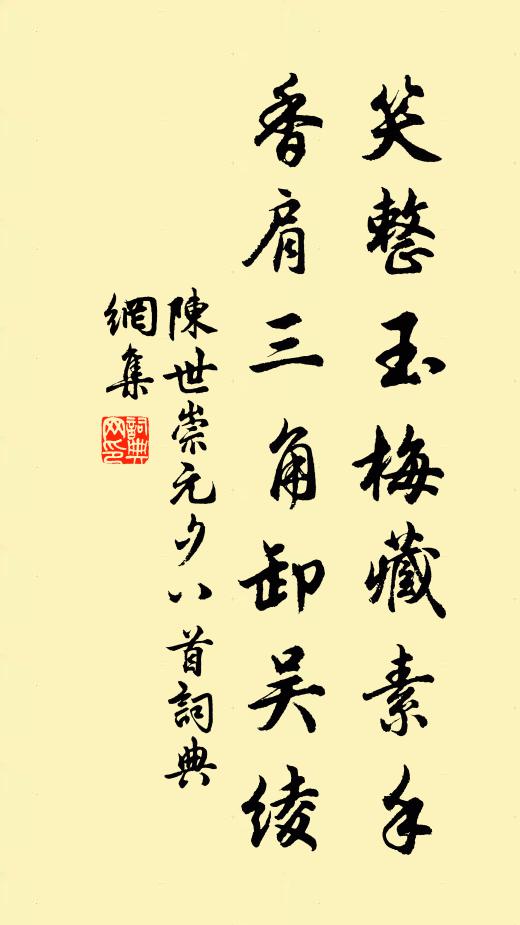 笑整玉梅藏素手
香肩三角卸吴綾
陳世崇元夕八首詞典
網集
詞典網印